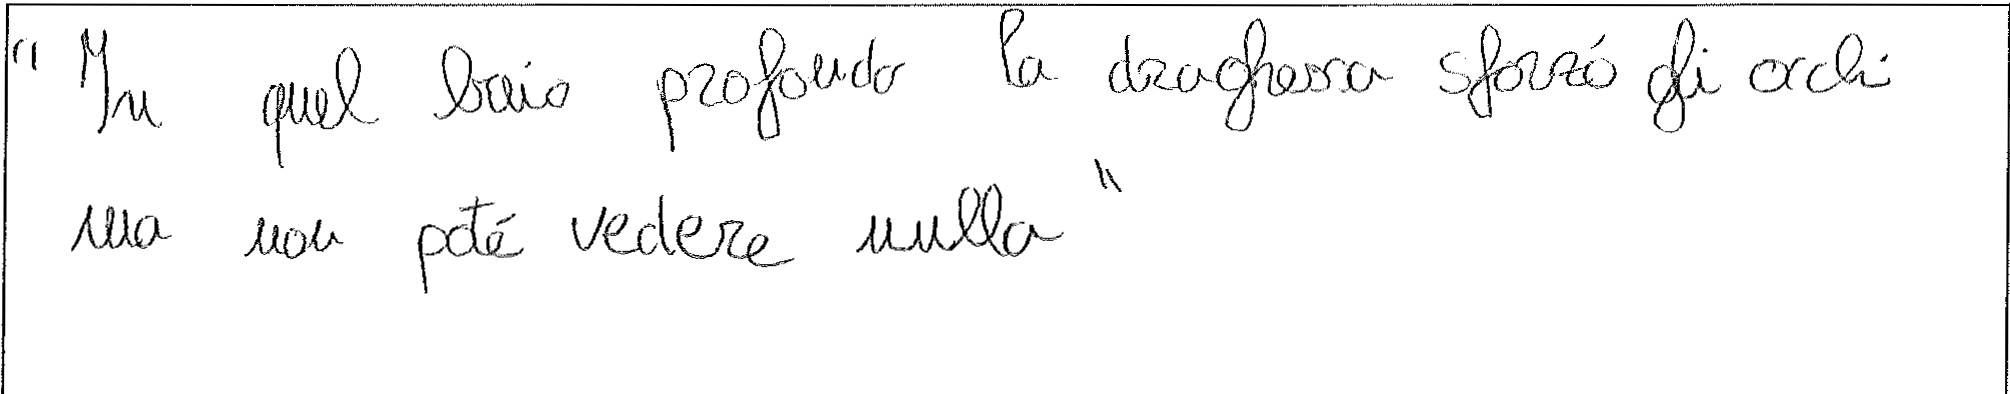 "In quel baio profondo la draghessa sforzó gli occhi
ma non poté vedere nulla"